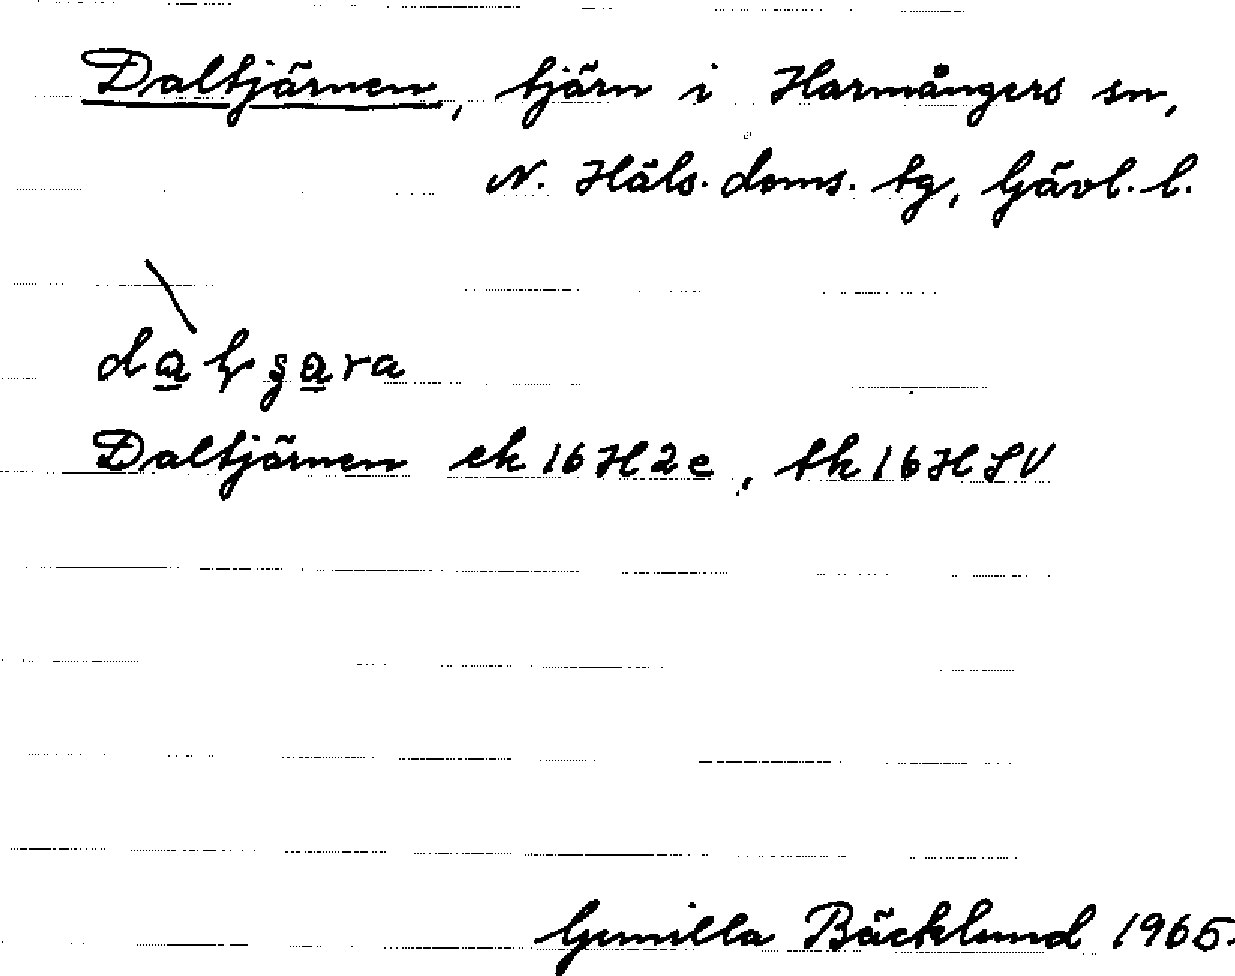 Daltjärnen, tjärn i Harmångers sn,
N. Häls. doms. tg, Gävl. l.
Daltjärnen ek 16H2e, tk 16HSV
Gunilla Bäcklund 1965.